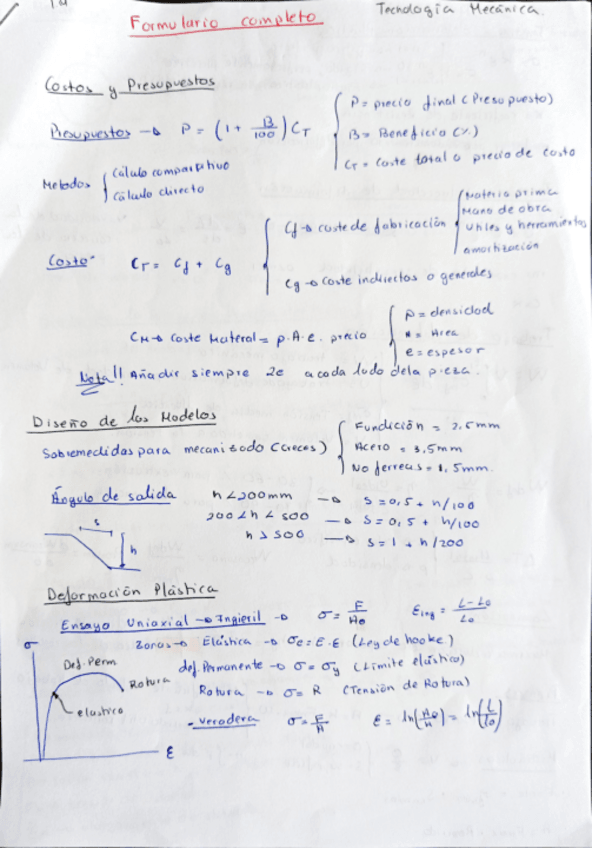 Formulario completo
Tecnología Mecánica.
Costos y Presupuestos
Presupuestos → P = (1 + B/100) CT { P = precio final (Presupuesto)
B = Beneficio (%)
CT = coste total o precio de costo
Metodos { cálculo comparativo
cálculo directo
Costo CT = Cf + Cg { Cf → coste de fabricación { Materia prima
Mano de obra
Utiles y herramientas
amortización
Cg → Coste indirectos o generales
CM → Coste Material = ρ.A.e. precio { ρ = densidad
= Area
e = espesor
Nota!! Añadir siempre 2e a cada lado de la pieza.
Diseño de los Modelos
Sobremedidas para mecanizado (creces) { Fundición = 2,5mm
Acero = 3,5mm
No ferreas = 1,5mm.
Ángulo de salida h < 200mm → S = 0,5 + h/100
200 < h < 500 → S = 0,5 + h/100
h > 500 → S = 1 + h/200
s
h
Deformación Plástica
Ensayo Uniaxial → Ingieril → σ = F/A0 εing = L-L0/L0
Zonas → Elástica → σe = E.ε (Ley de hooke)
def. Permanente → σ = σy (Límite elástico)
Rotura → σ = R (Tensión de Rotura)
- Veradera σ = F/A ε = ln(A0/A) = ln(L/L0)
σ
Def. Perm
Rotura
elastico
ε